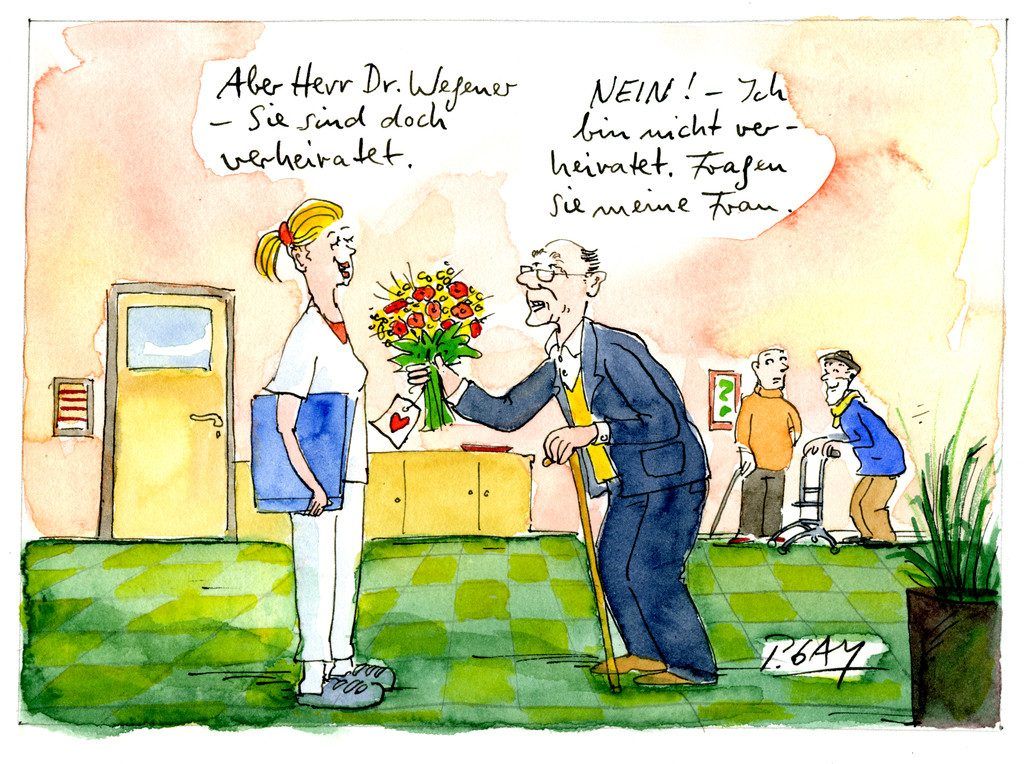 Aber Herr Dr. Wegener
– Sie sind doch
verheiratet.
NEIN! – Ich
bin nicht ver-
heiratet. Fragen
Sie meine Frau.
P. GAY